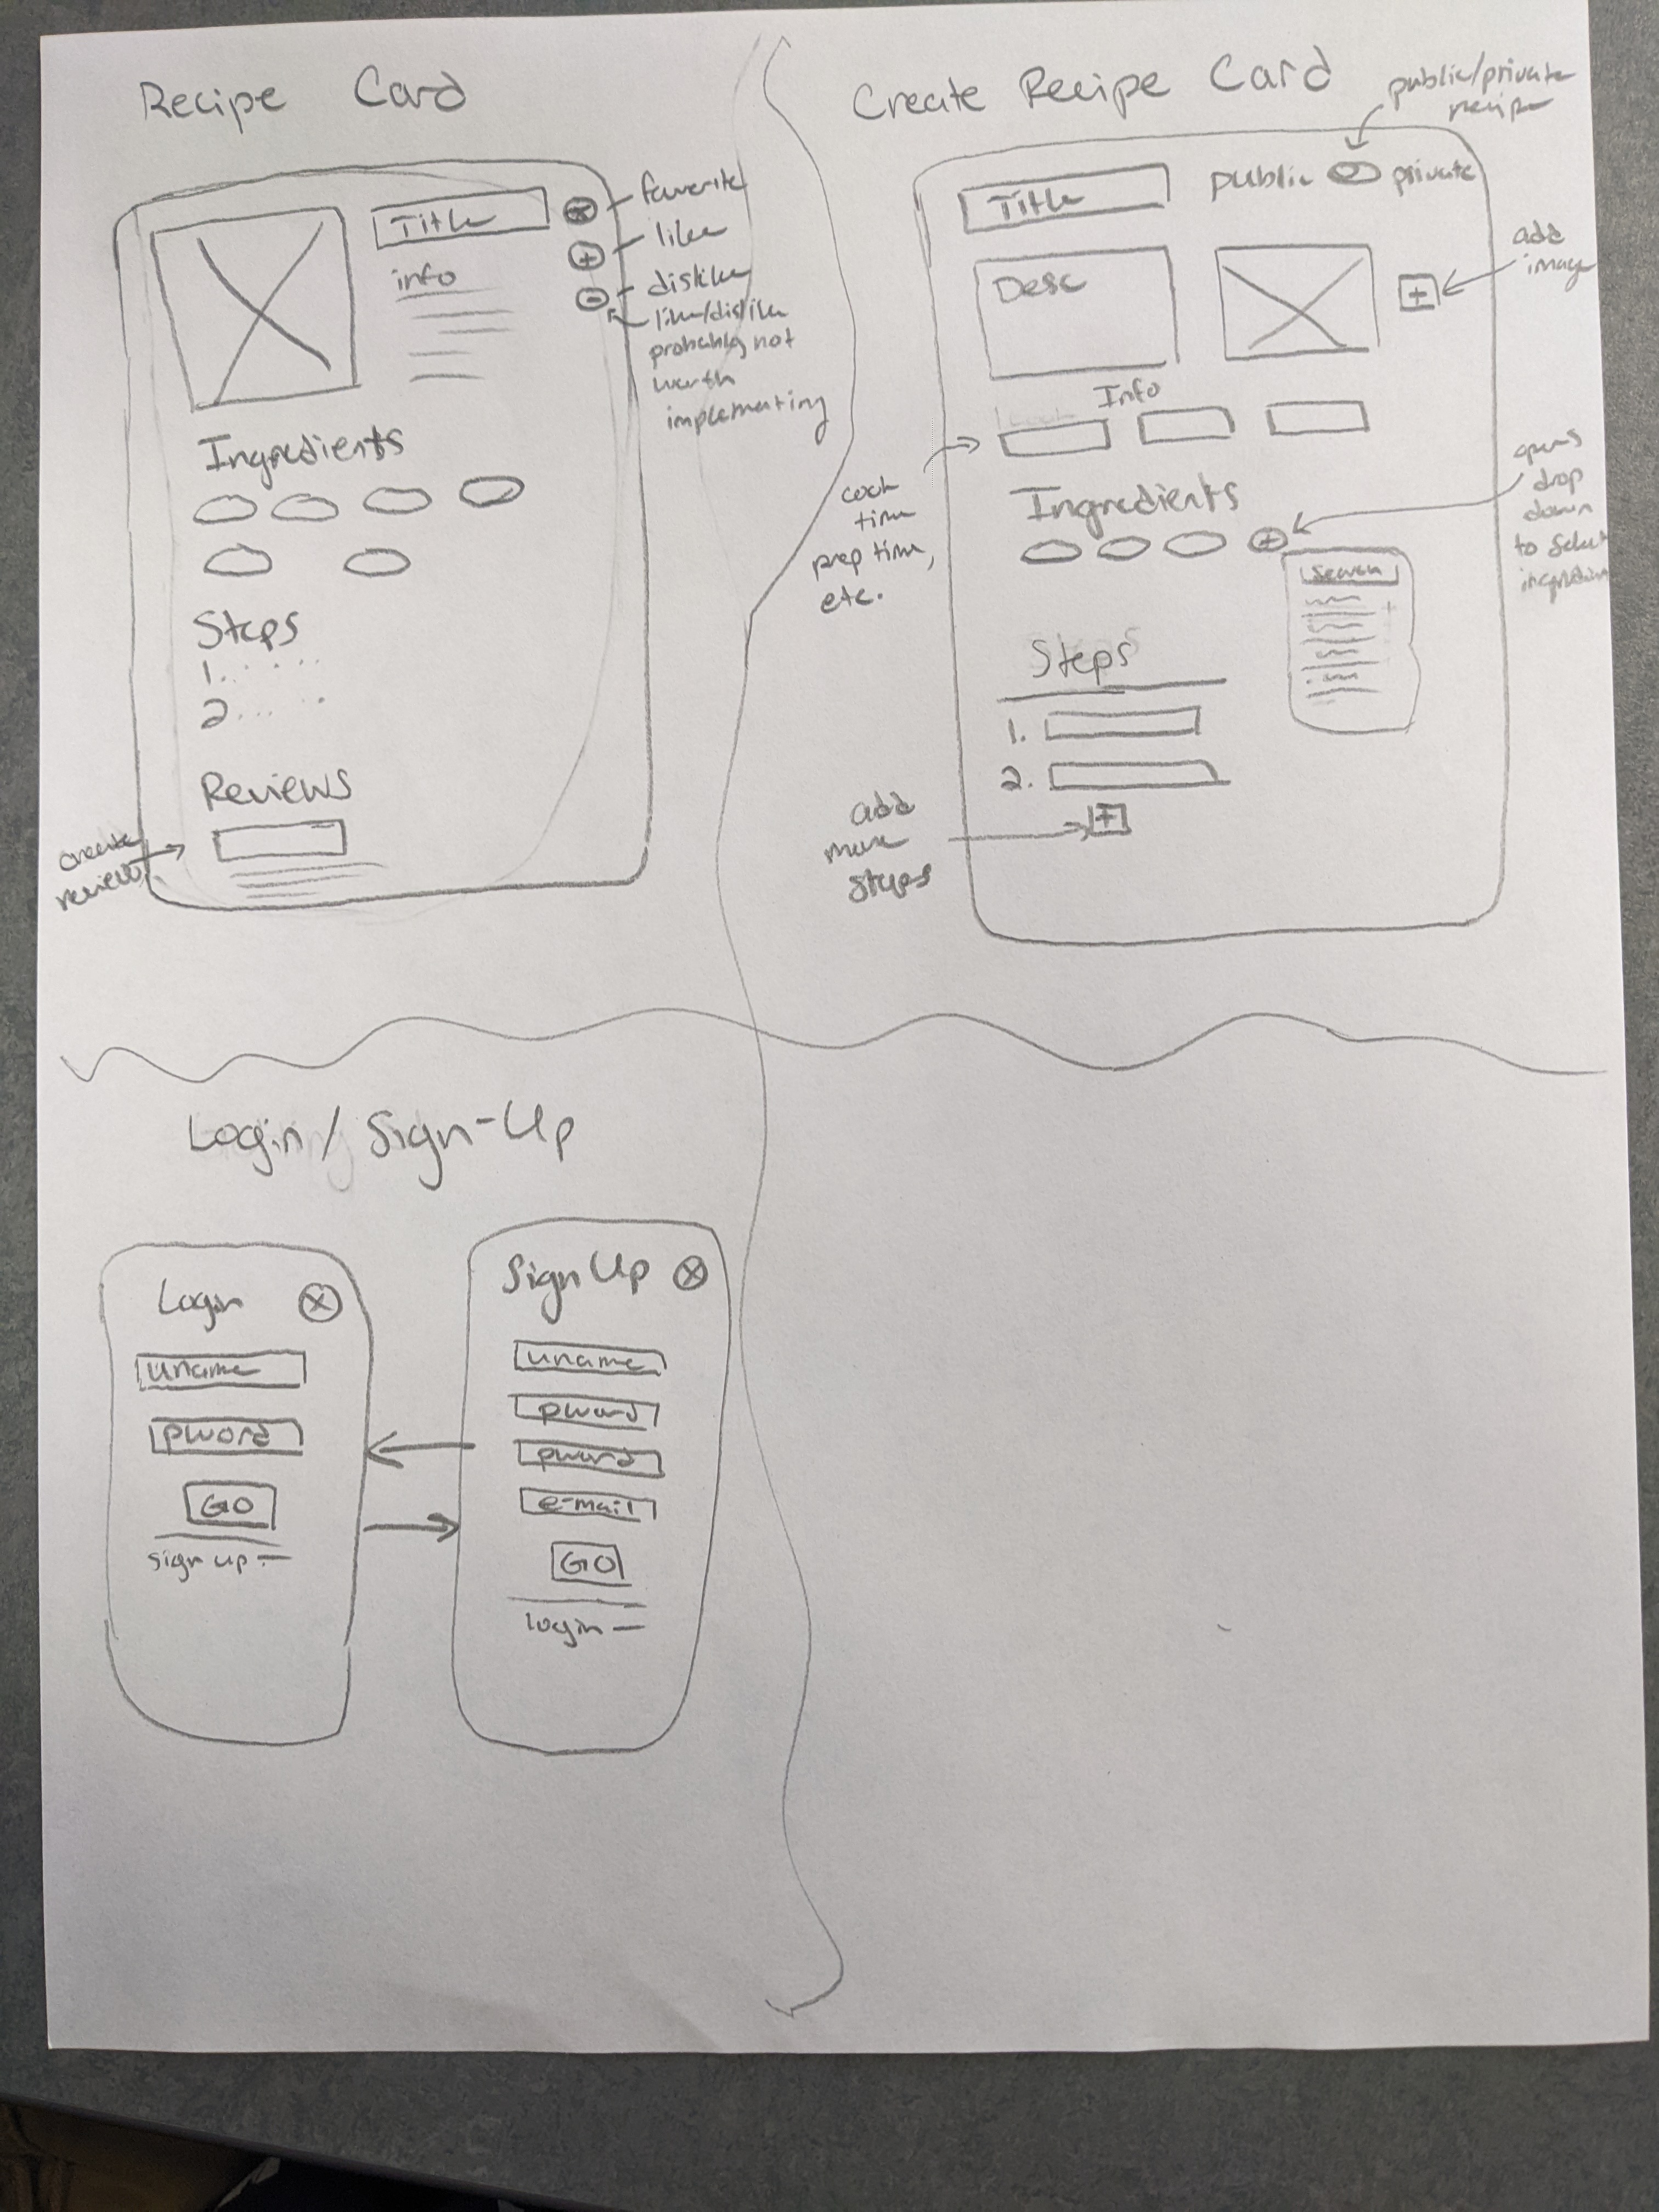 Recipe Card
Title
info
favorite
like
dislike
like/dislike
probably not
worth
implementing
Ingredients
Steps
1.
2
Reviews
create
review
Create Recipe Card
public/private
recipe
Title
public
private
Desc
add
image
Info
cook
time
prep time,
etc.
Ingredients
opens
drop
down
to select
ingredients
Search
Steps
1.
2.
add
more
steps
Login / Sign-Up
Login
uname
pword
GO
sign up
Sign Up
uname
pword
pword
e-mail
GO
login